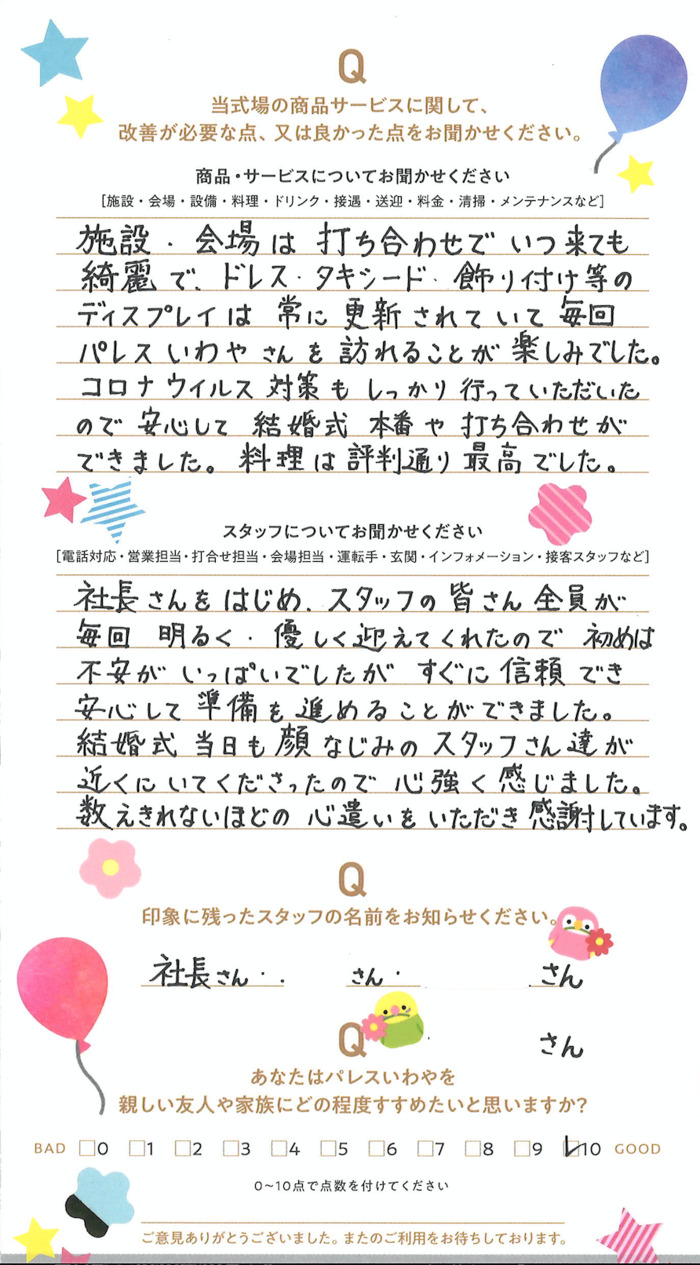 Q
当式場の商品サービスに関して、
改善が必要な点、又は良かった点をお聞かせください。
商品・サービスについてお聞かせください
[施設・会場・設備・料理・ドリンク・接遇・送迎・料金・清掃・メンテナンスなど]
施設・会場は打ち合わせでいつ来ても
綺麗で、ドレス・タキシード・飾り付け等の
ディスプレイは常に更新されていて毎回
パレスいわやさんを訪れることが楽しみでした。
コロナウイルス対策もしっかり行っていただいた
ので安心して結婚式本番や打ち合わせが
できました。料理は評判通り最高でした。
スタッフについてお聞かせください
[電話対応・営業担当・打合せ担当・会場担当・運転手・玄関・インフォメーション・接客スタッフなど]
社長さんをはじめ、スタッフの皆さん全員が
毎回明るく・優しく迎えてくれたので初めは
不安がいっぱいでしたがすぐに信頼でき
安心して準備を進めることができました。
結婚式当日も顔なじみのスタッフさん達が
近くにいてくださったので心強く感じました。
数えきれないほどの心遣いをいただき感謝しています。
Q
印象に残ったスタッフの名前をお知らせください。
社長さん・・ さん・ さん
さん
Q
あなたはパレスいわやを
親しい友人や家族にどの程度すすめたいと思いますか?
BAD □0 □1 □2 □3 □4 □5 □6 □7 □8 □9 ☑10 GOOD
0~10点で点数を付けてください
ご意見ありがとうございました。またのご利用をお待ちしております。